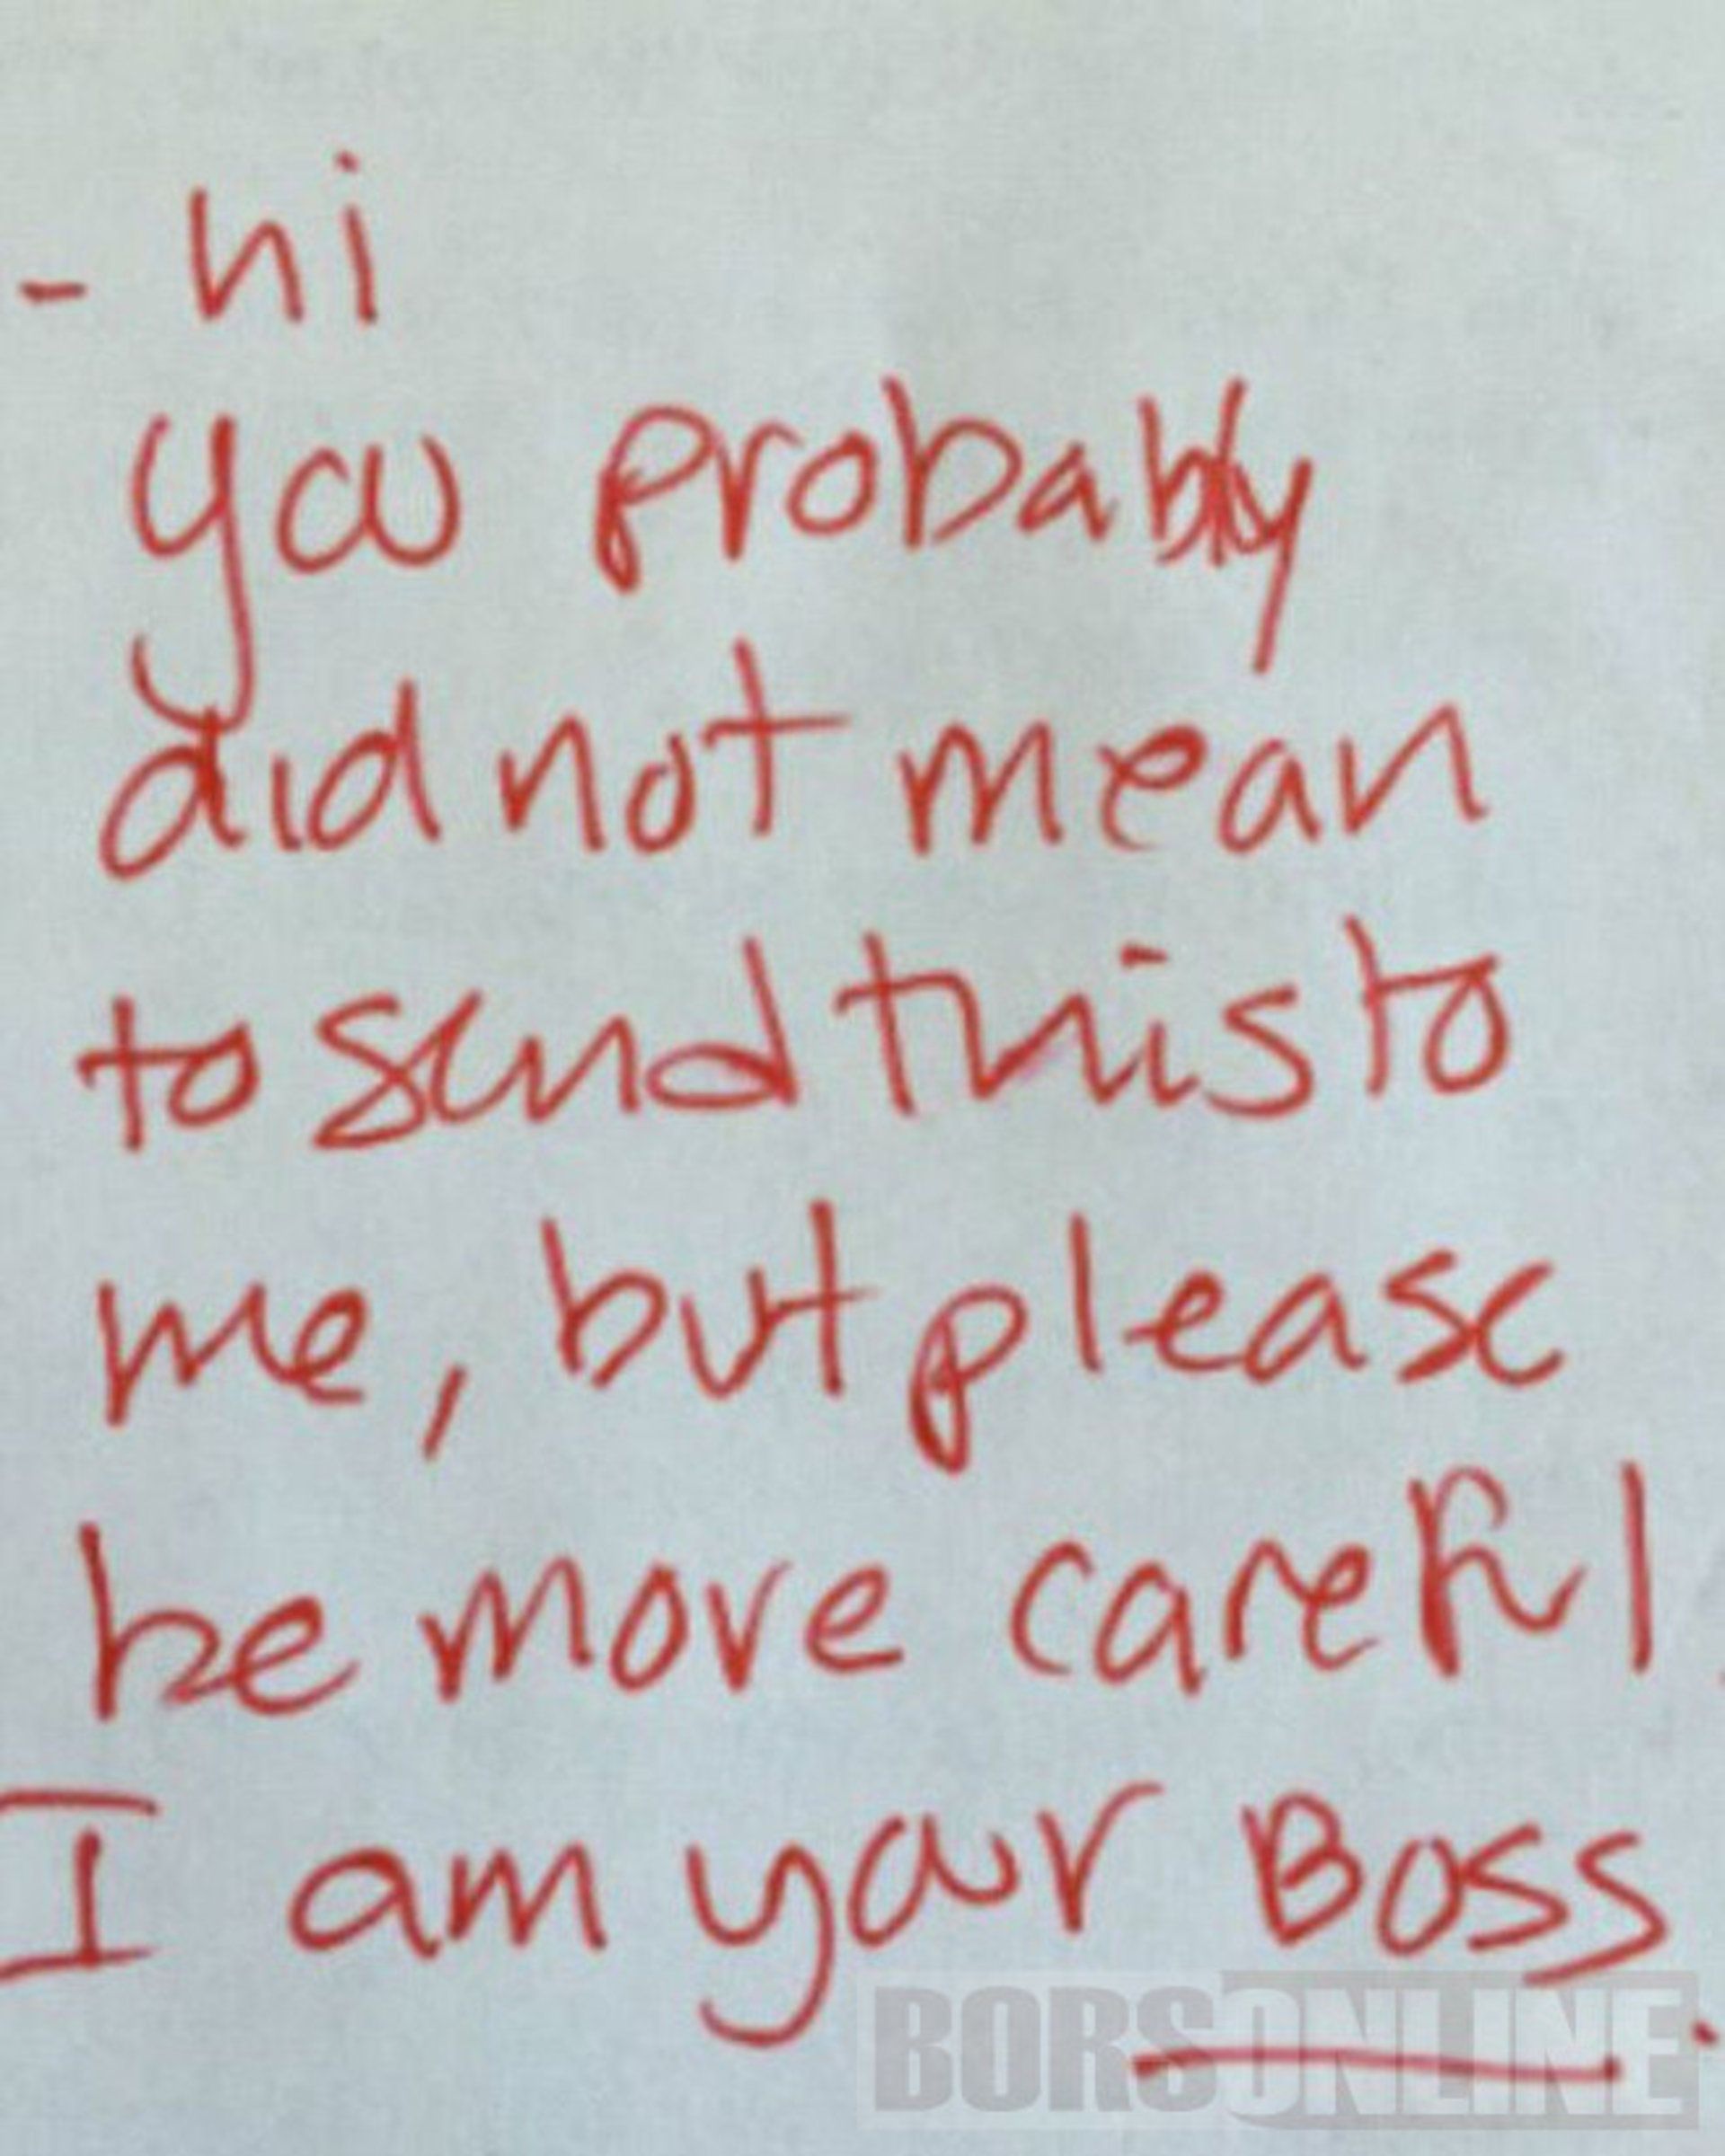 - hi
you probably
did not mean
to send this to
me, but please
be more careful.
I am your Boss.
BORSONLINE